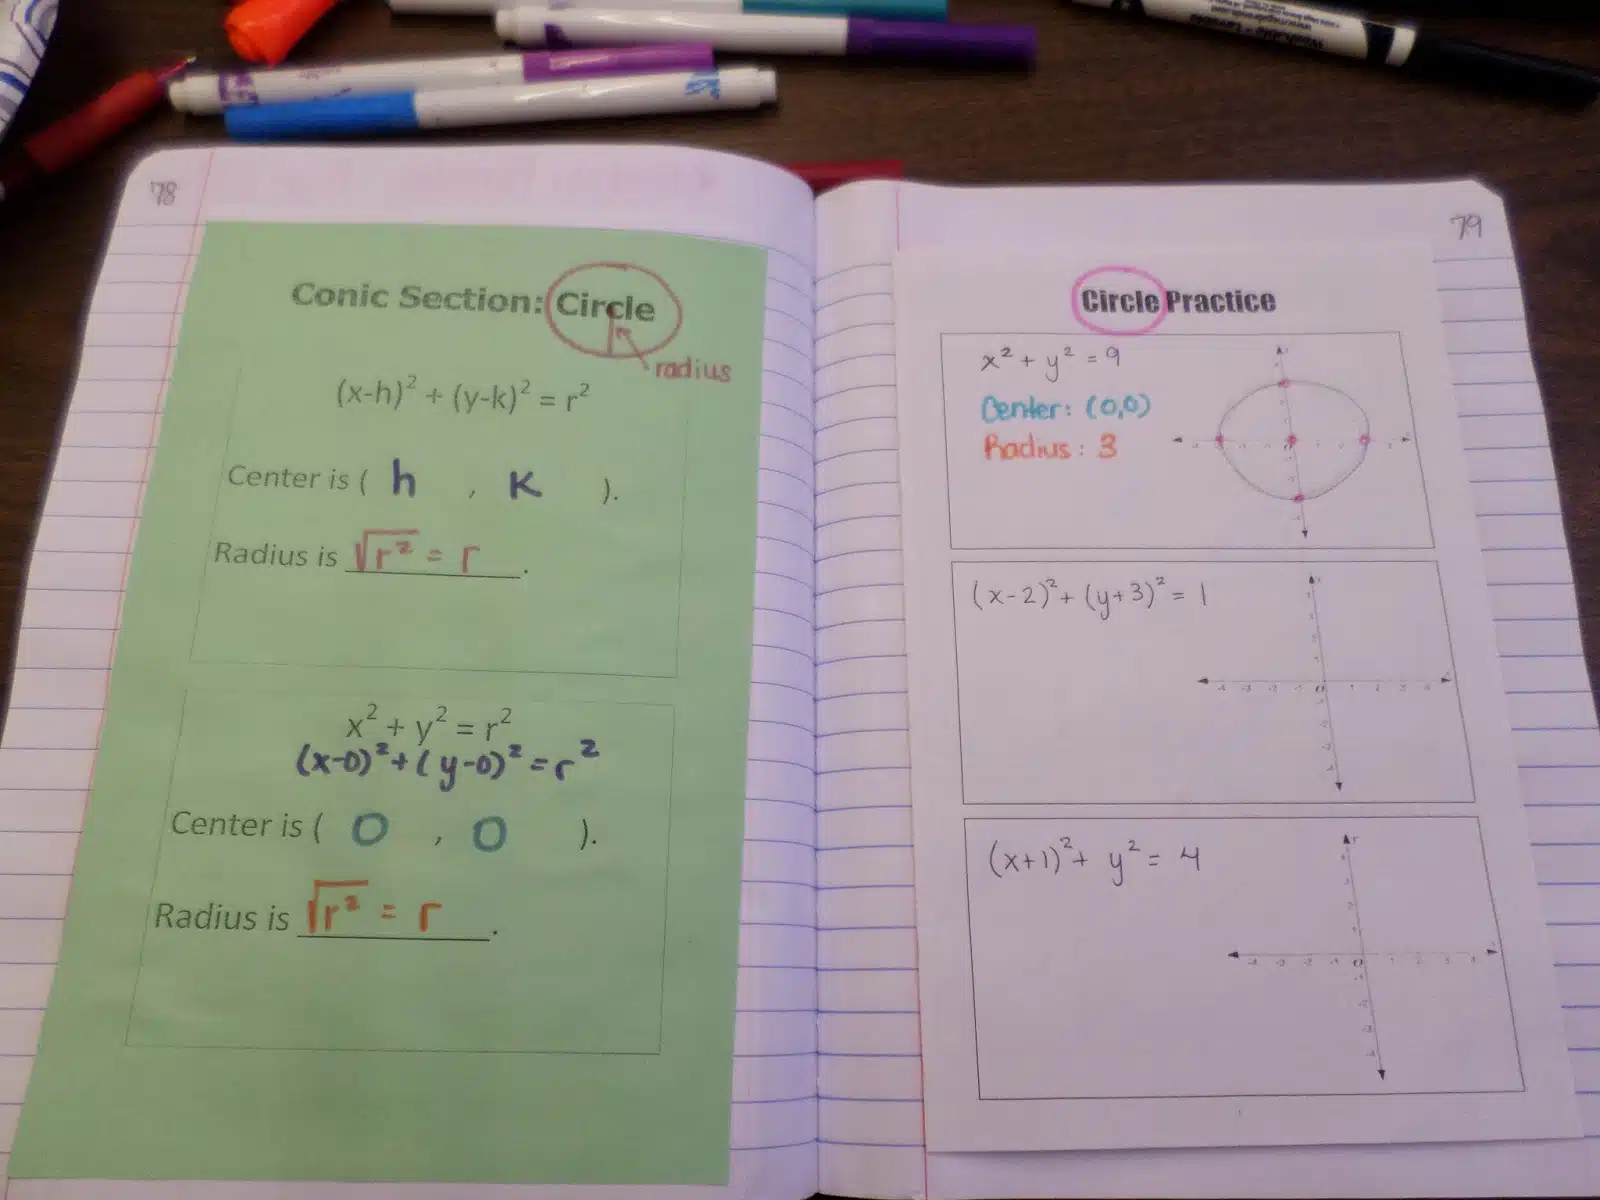 78
Conic Section: Circle
radius
(x-h)² + (y-k)² = r²
Center is ( h , K ).
Radius is √r² = r.
x² + y² = r²
(x-0)² + (y-0)² = r²
Center is ( 0 , 0 ).
Radius is √r² = r.
79
Circle Practice
x² + y² = 9
Center: (0,0)
Radius: 3
(x-2)² + (y+3)² = 1
-4 -3 -2 -1 0 1 2 3 4
(x+1)² + y² = 4
-4 -3 -2 -1 0 1 2 3 4